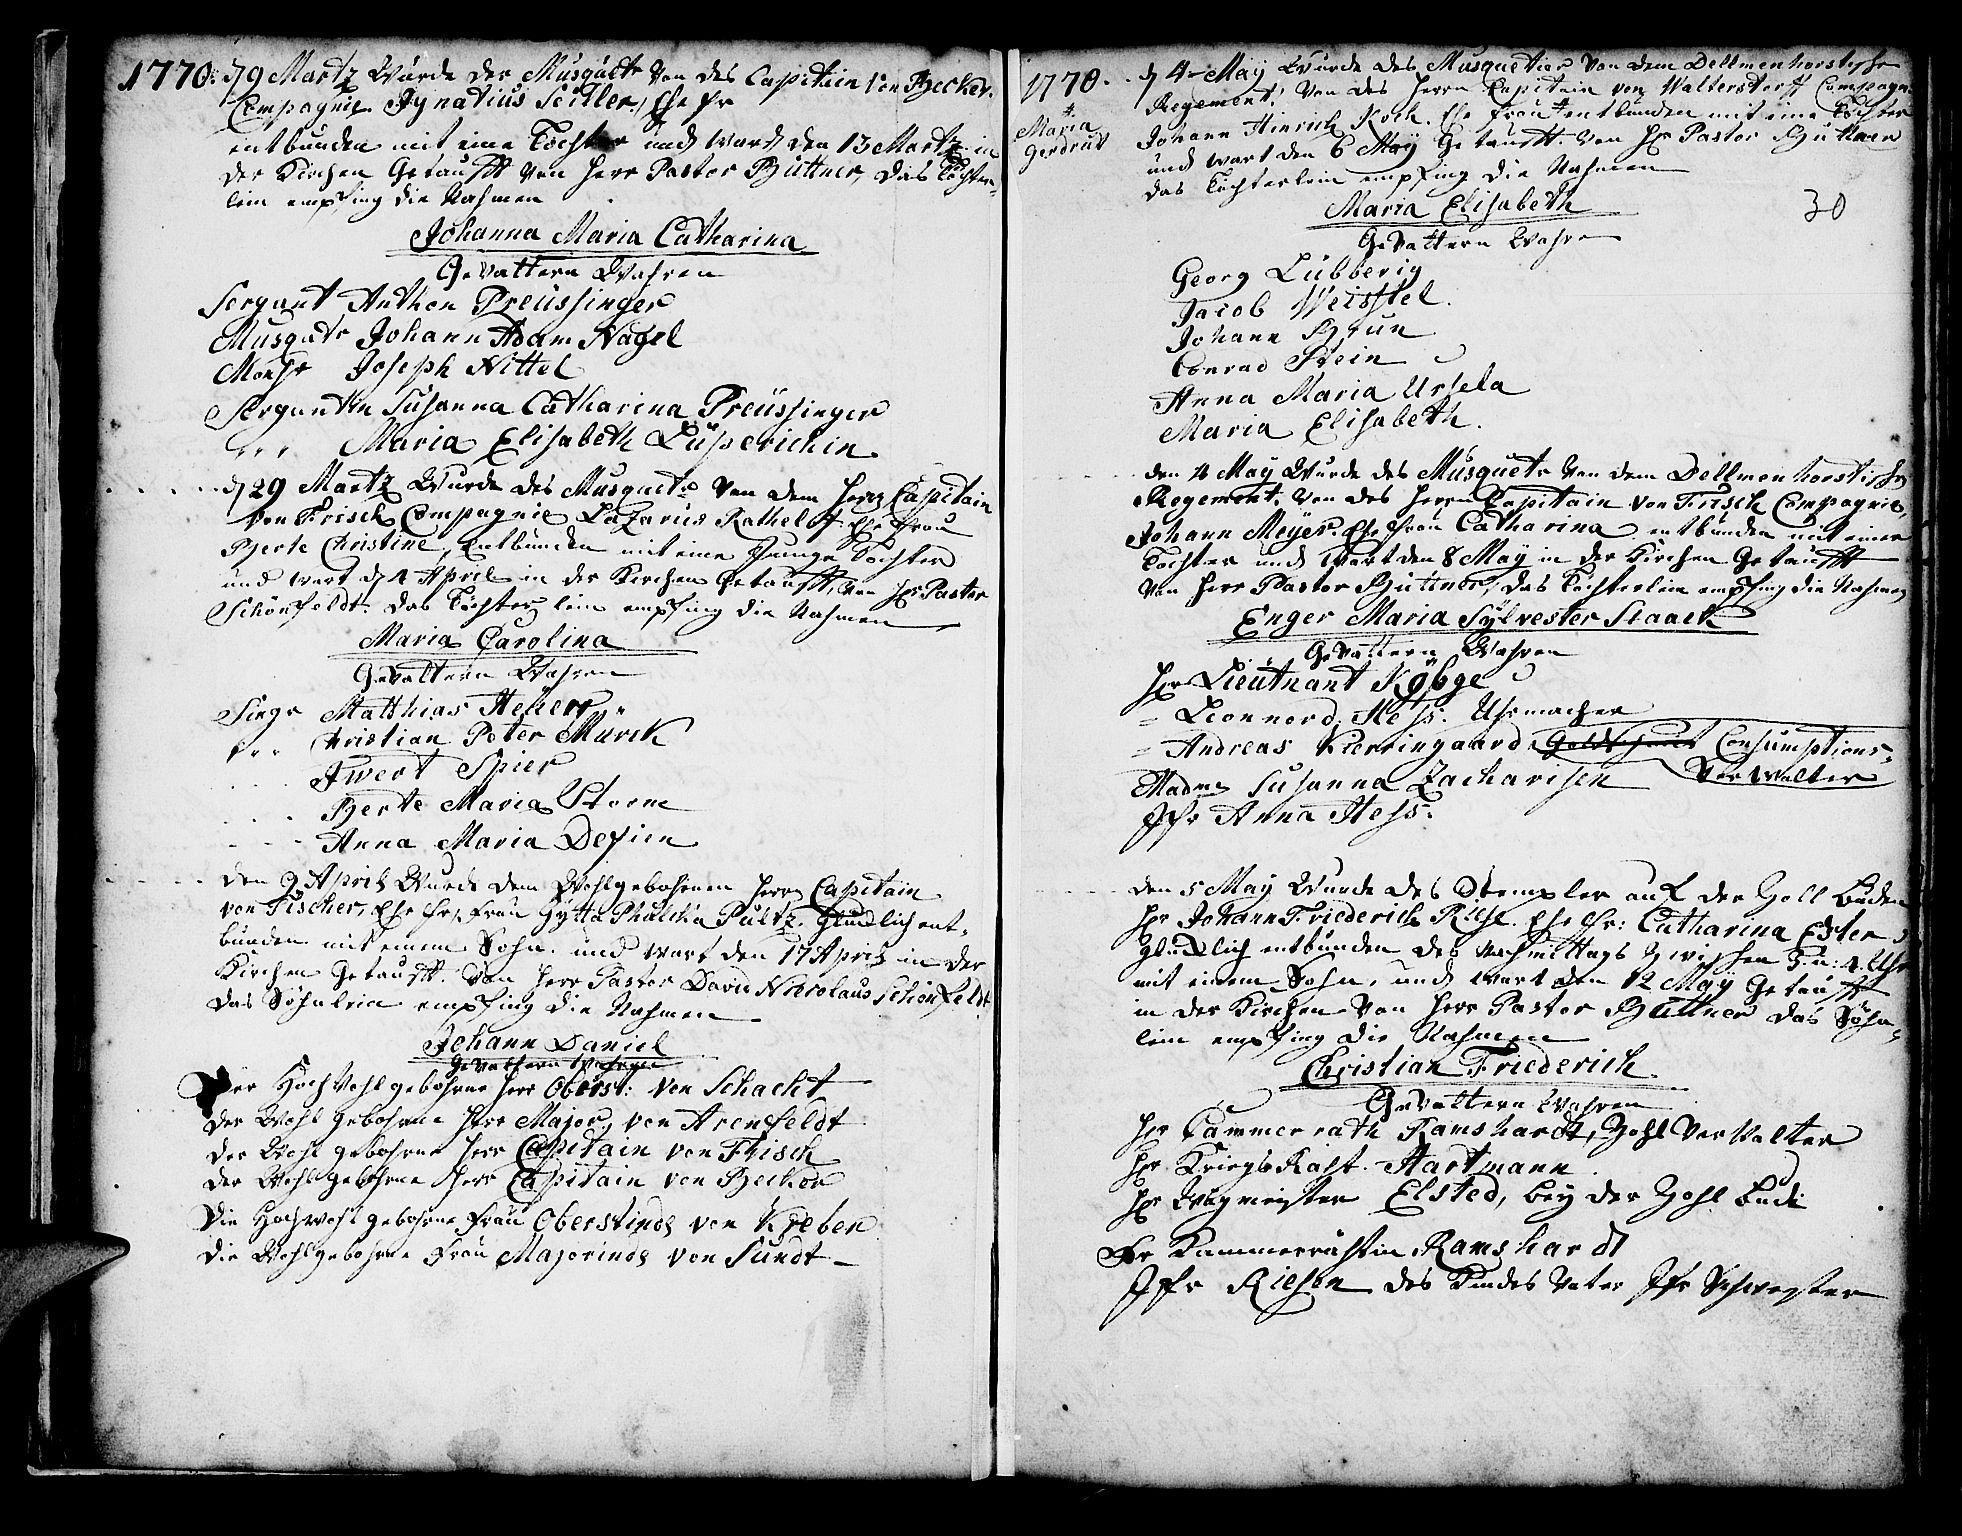 1770. d 9 Martz Wurde der Musquetr Von des Capitain Von Becker
Compagnie Ignatius Seitler, Ehe fr
entbunden mit eine Tochter und ward den 13 Martz in
der Kirchen Getaufft von Herr Pastor Büttner, das Töchter-
lein empfing die Nahmen
Johanna Maria Catharina
Gevattern Wahren
Sergant Anthon Preussinger
Musqutr Johann Adam Nagel
Monsr Joseph Nittel
Sergantin Susanna Catharina Preussinger
Maria Elisabeth Lüperichin
d 29 Martz Wurde des Musquetr Von dem Herrn Capitain
von Frisch Compagnie Lazarus Rathel Ehe Frau
Berte Christine, Entbunden mit eine Junge Tochter
und wart d 4 April in der Kirchen Getaufft, von Hr Pastor
Schönfeldt. das Töchterlein empfing die Nahmen
Maria Carolina
Gevattern Wahren
Matthias Heuer
Christian Peter Murck
Iwert Spier
Berte Maria Storm
Anna Maria Defien
den 9 April Wurde dem Wohlgebohrnen Herrn Capitain
von Fischer, Ehe fr, Frau Gytta Pultz, Glucklich ent-
bunden mit einem Sohn. und wart den 17 April in der
Kirchen Getaufft. Von Herr Pastor David Nicolaus Schönfeldt
das Söhnlein empfing die Nahmen
Johann Daniel
Gevattern Wahren
Der Hoch Wohlgebohrne Herr Oberst: von Schacht
der Wohl gebohrne Herr Major, von Arenfeldt
der Wohl gebohrne Herr Capitain von Frisch
der Wohlgebohrne Herr Capitain von Becker
Die Hochwohlgebohrne Frau Oberstinde von Kyeben
die Wohlgebohrne Frau Majorinde von Sundt
1770. d 4 May Wurde des Musquetier Von dem Dellmenhorstische
Regement, Von des Herrn Capitain von Walterstorff Compagn
Maria
Gerdrut
Johann Hinrich Koch. Ehe Frau entbunden mit eine Tochter
und wart den 6 May Getaufft. Von Hr Pastor Büttner
das Töchterlein empfing die Nahmen
Maria Elisabeth
30
Gevattern Wahren
Georg Lübberig
Jacob Weisstel.
Johann Brun
Conrad Stein
Anna Maria Ursela
Maria Elisabeth.
den 4 May Wurde des Musquetr Von dem Dellmenhorstische
Regement, Von des Herrn Capitain von Frisch Compagnie,
Johann Meyer. Ehe Frau Catharina entbunden mit einer
Tochter und Wart den 8 May in der Kirchen Getaufft
von Herr Pastor Büttner, das Töchterlein empfing die Nahmen
Enger Maria Sylvester Staack
Gevattern Wahren
Hr Lieutnant Köbge
Lionnord, Hess. Uhrmacher
Andreas Kierringaard Goldschmit Consumptions-
Verwalter
Madme Susanna Zacharisen
Jfr Anna Hess.
den 5 May Wurde des Stempler auf der Zoll Buden
Hr Johann Friederich Riese. Ehe fr: Catharina Ester
Glücklich entbunden des nachmittags Zwischen 3 u: 4 Uhr
mit einem Sohn, und wart den 12 May Getaufft
in der Kirchen Von Herr Pastor Büttner das Söhn-
lein empfing die Nahmen
Christian Friederich
Gevattern Wahren
Hr Cammerrath Ramshardt, Zohl Verwalter
Hr Kriegs Raht. Hartmann
Hr Wegmeister Elsted, bey der Zohl Bude
Fr Kammerrähtin Ramshardt
Jfr Riesen des Kindes Vater Jfr Schwester